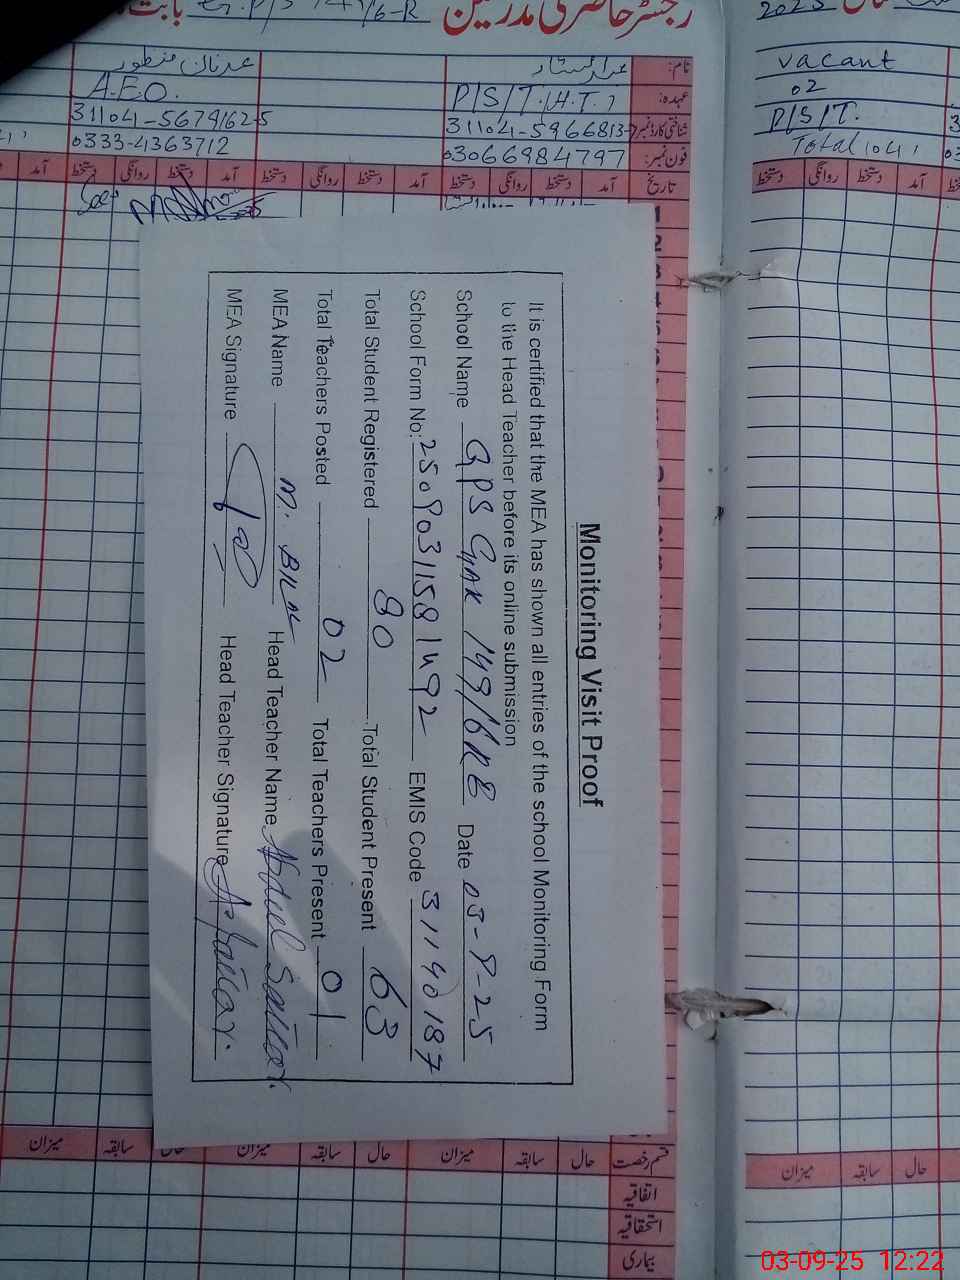 رجسٹر حاضری مدرسین
2025
نام:
عبدالستار
عدنان منظور
vacant
عہدہ:
P/S/T.(H.T.)
A.E.O.
02
شناختی کارڈ نمبر
31104-5966813-
31104-5679162-5
P/S/T.
فون نمبر:
03066984797
0333-4363712
Total (04)
تاریخ
آمد دستخط روانگی دستخط آمد دستخط روانگی دستخط آمد دستخط روانگی دستخط آمد
آمد دستخط روانگی دستخط
Monitoring Visit Proof
It is certified that the MEA has shown all entries of the school Monitoring Form
to the Head Teacher before its online submission
School Name GPS Chak 149/6R E Date 03-9-25
School Form No: 25090311581492 EMIS Code 31140187
Total Student Registered 80 Total Student Present 63
Total Teachers Posted 02 Total Teachers Present 01
MEA Name M. BILAL Head Teacher Name Abdul Sattar.
MEA Signature Head Teacher Signature A. Sattar.
قسم رخصت
حال سابقہ میزان حال سابقہ میزان حال سابقہ میزان
حال سابقہ میزان
اتفاقیہ
استحقاقیہ
بیماری
03-09-25 12:22